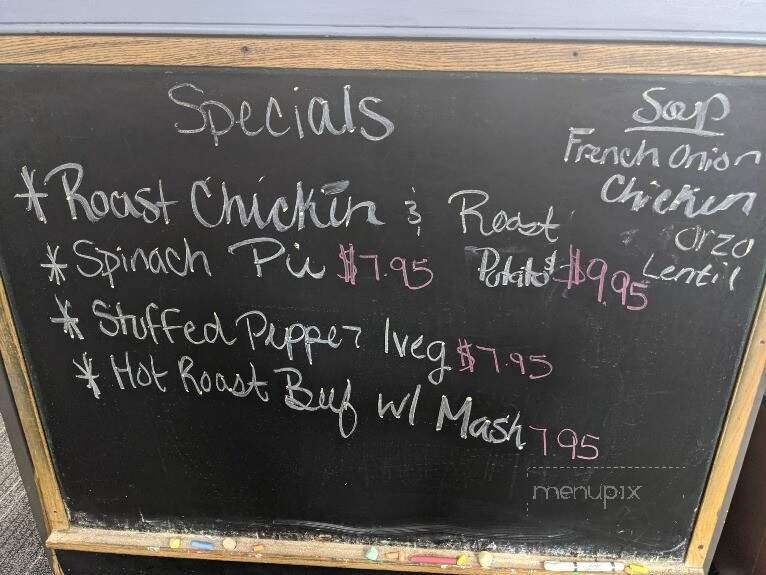 Specials
* Roast Chicken & Roast
Potatoes $9.95
* Spinach Pie $7.95
* Stuffed Pepper 1veg $7.95
* Hot Roast Beef w/ Mash 7.95
Soup
French Onion
Chicken
Orzo
Lentil
menupix